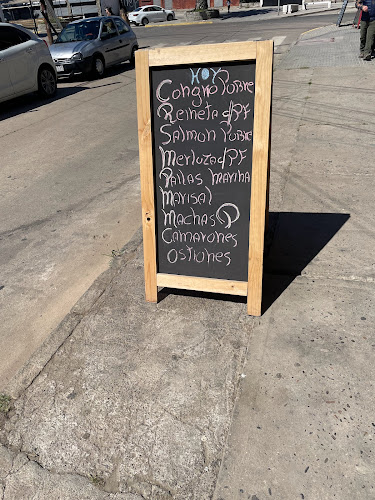 HOY
Congrio Pobre
Reineta d/PF
Salmon Pobre
Merluza d/PF
Pailas marina
Marisal
Machas Q
Camarones
Ostiones